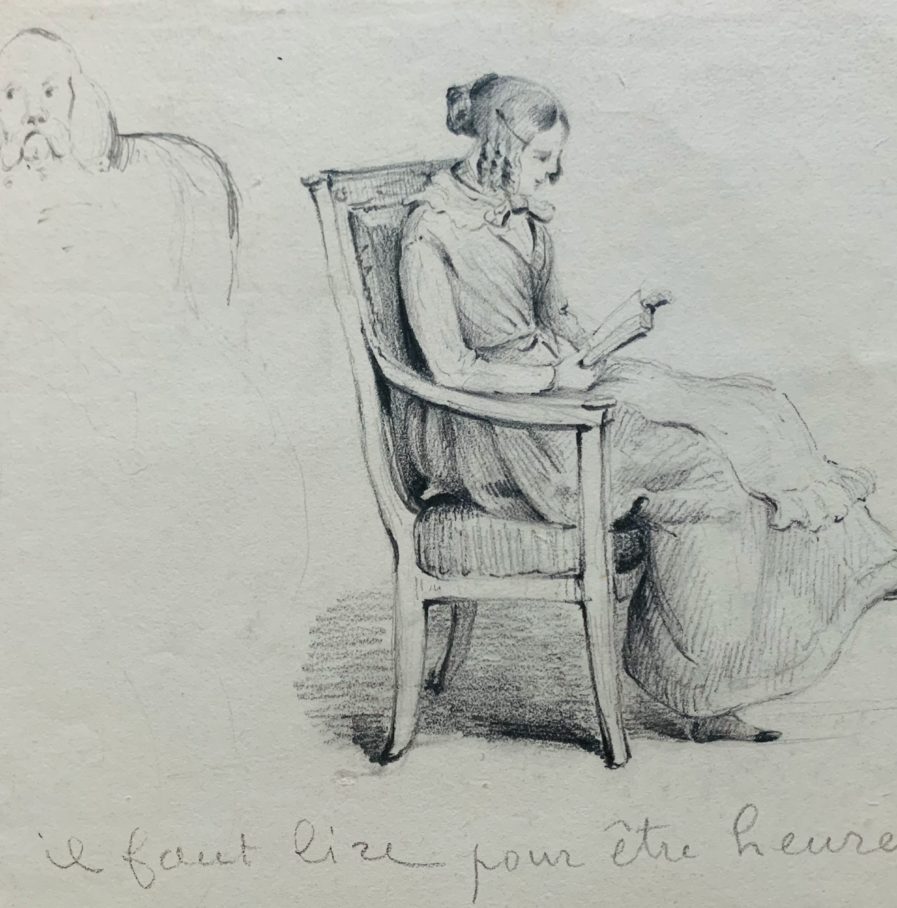 il faut lire pour être heure